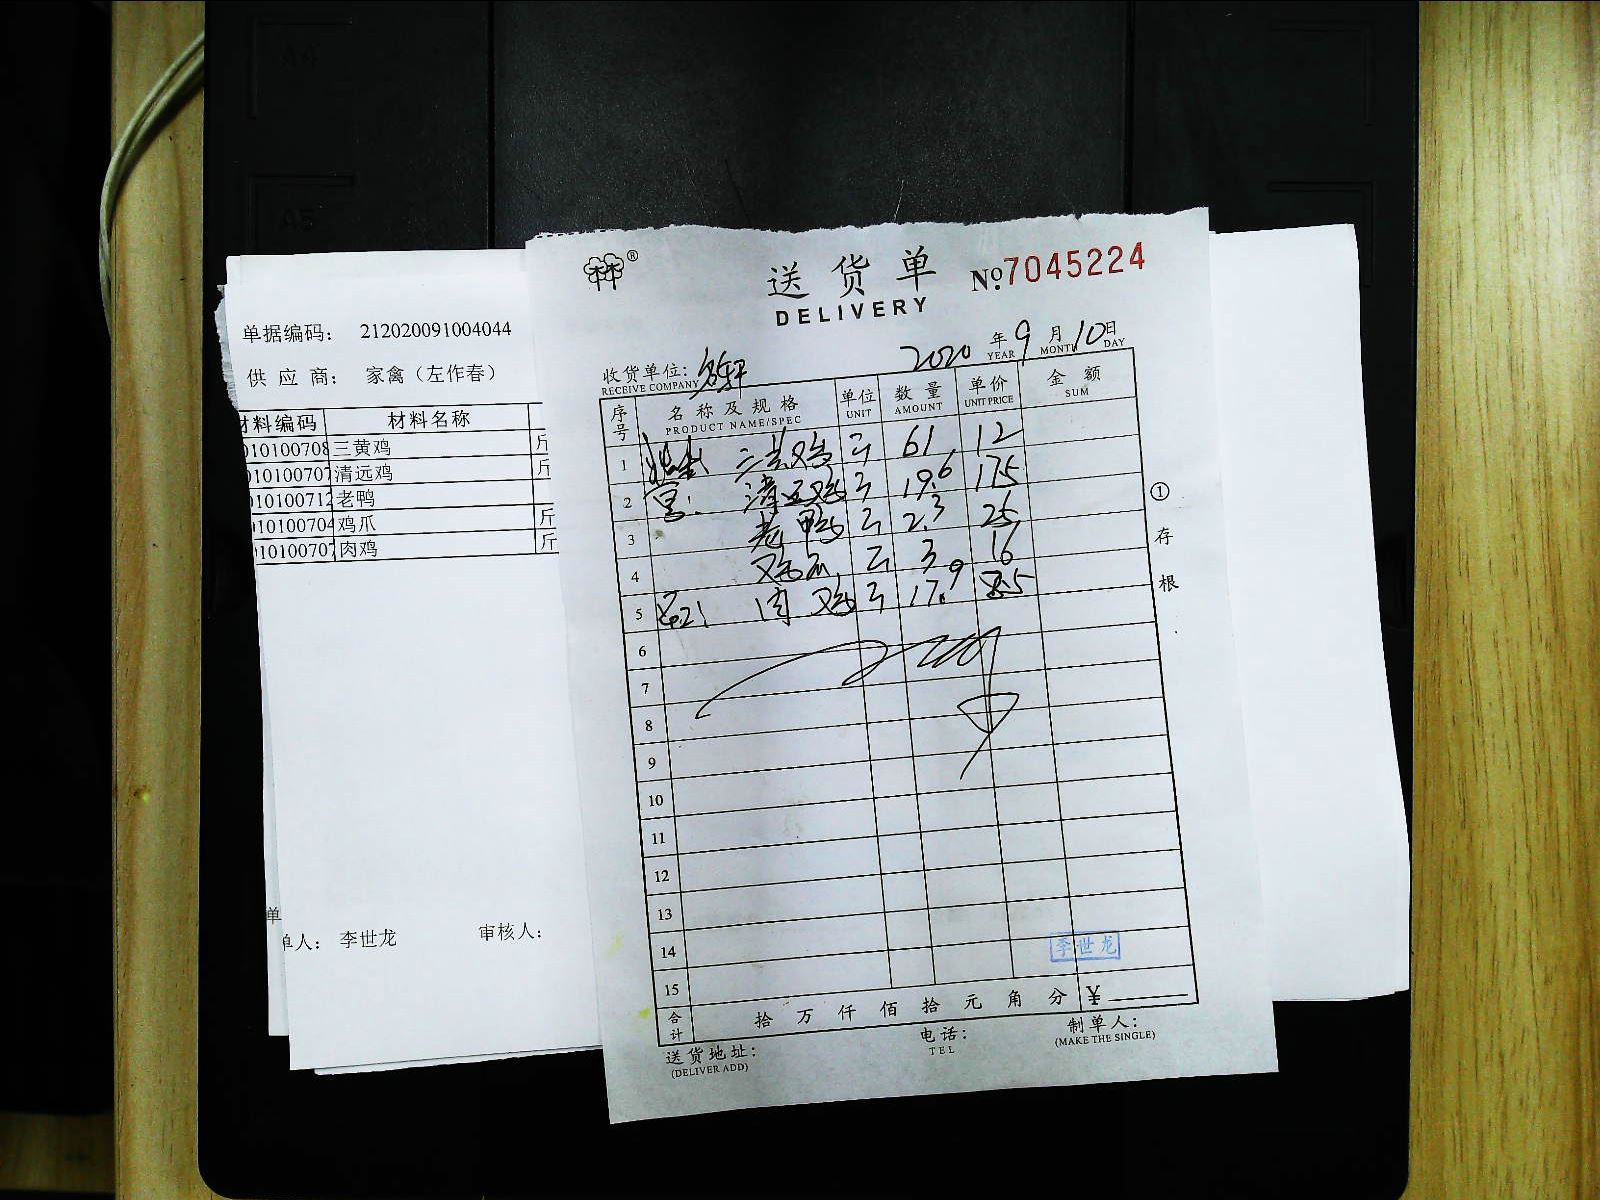 单据编码： 212020091004044
供 应 商： 家禽（左作春）
材料编码 材料名称
010100708 三黄鸡 斤
010100707 清远鸡 斤
010100712 老鸭
010100704 鸡爪 斤
010100707 肉鸡 斤
单
单人： 李世龙 审核人：
林®
送货单 №7045224
DELIVERY
2020 年 9 月 10 日
YEAR MONTH DAY
收货单位：
RECEIVE COMPANY
序号 名称及规格 单位 数量 单价 金额
PRODUCT NAME/SPEC UNIT AMOUNT UNIT PRICE SUM
1 三黄鸡 斤 61 12
2 清远鸡 斤 19.6 17.5
3 老鸭 斤 2.3 25
4 鸡爪 斤 3 16
5 肉鸡 斤 17.9 8.5
6
7
8
9
10
11
12
13
14
15
李世龙
合计 拾 万 仟 佰 拾 元 角 分 ¥
送货地址： 电话： 制单人：
(DELIVER ADD) TEL (MAKE THE SINGLE)
① 存根